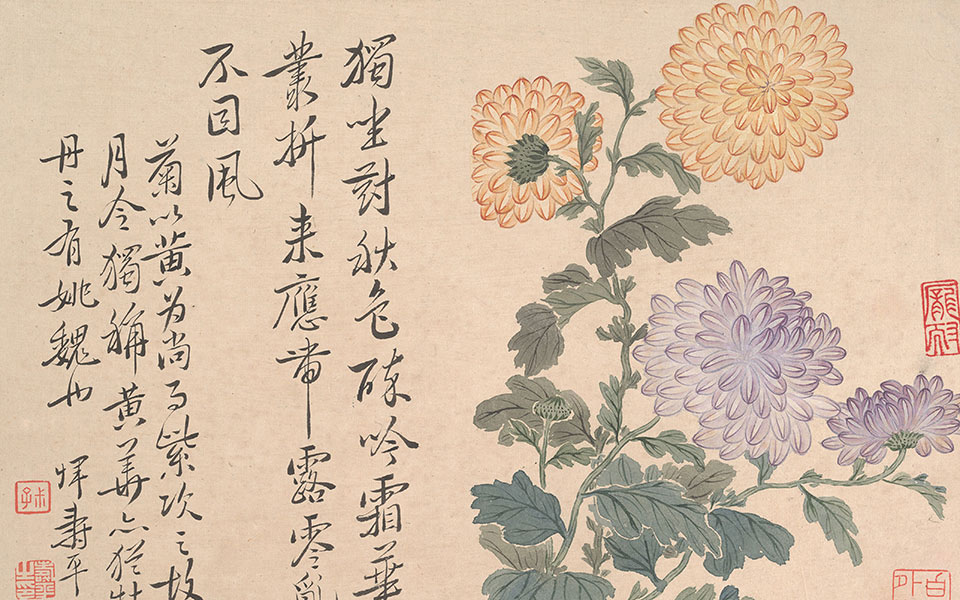 獨坐對秋色酔吟霜華
叢折来應帶露零亂
不因風
菊以黄为尚而紫次之故
月令獨稱黄華亦猶牡
丹之有姚魏也
惲壽平
叔子
白外